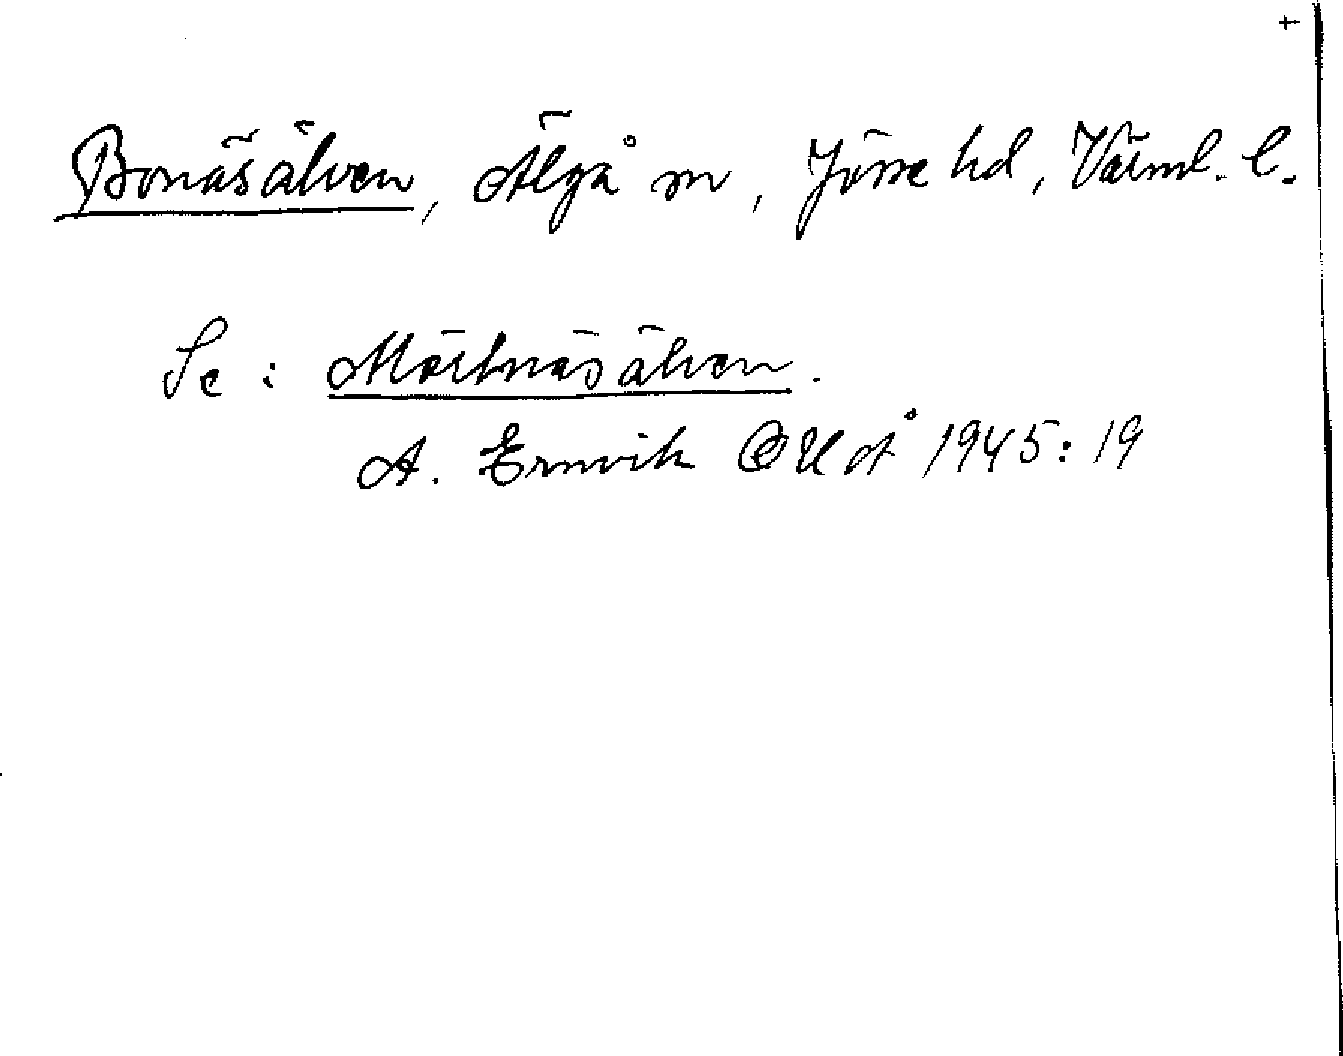 +
Bonäsälven, Älgå sn, Jösse hd, Värml. l.
Se: Mörtnäsälven.
A. Ernvik OUÅ 1945:19